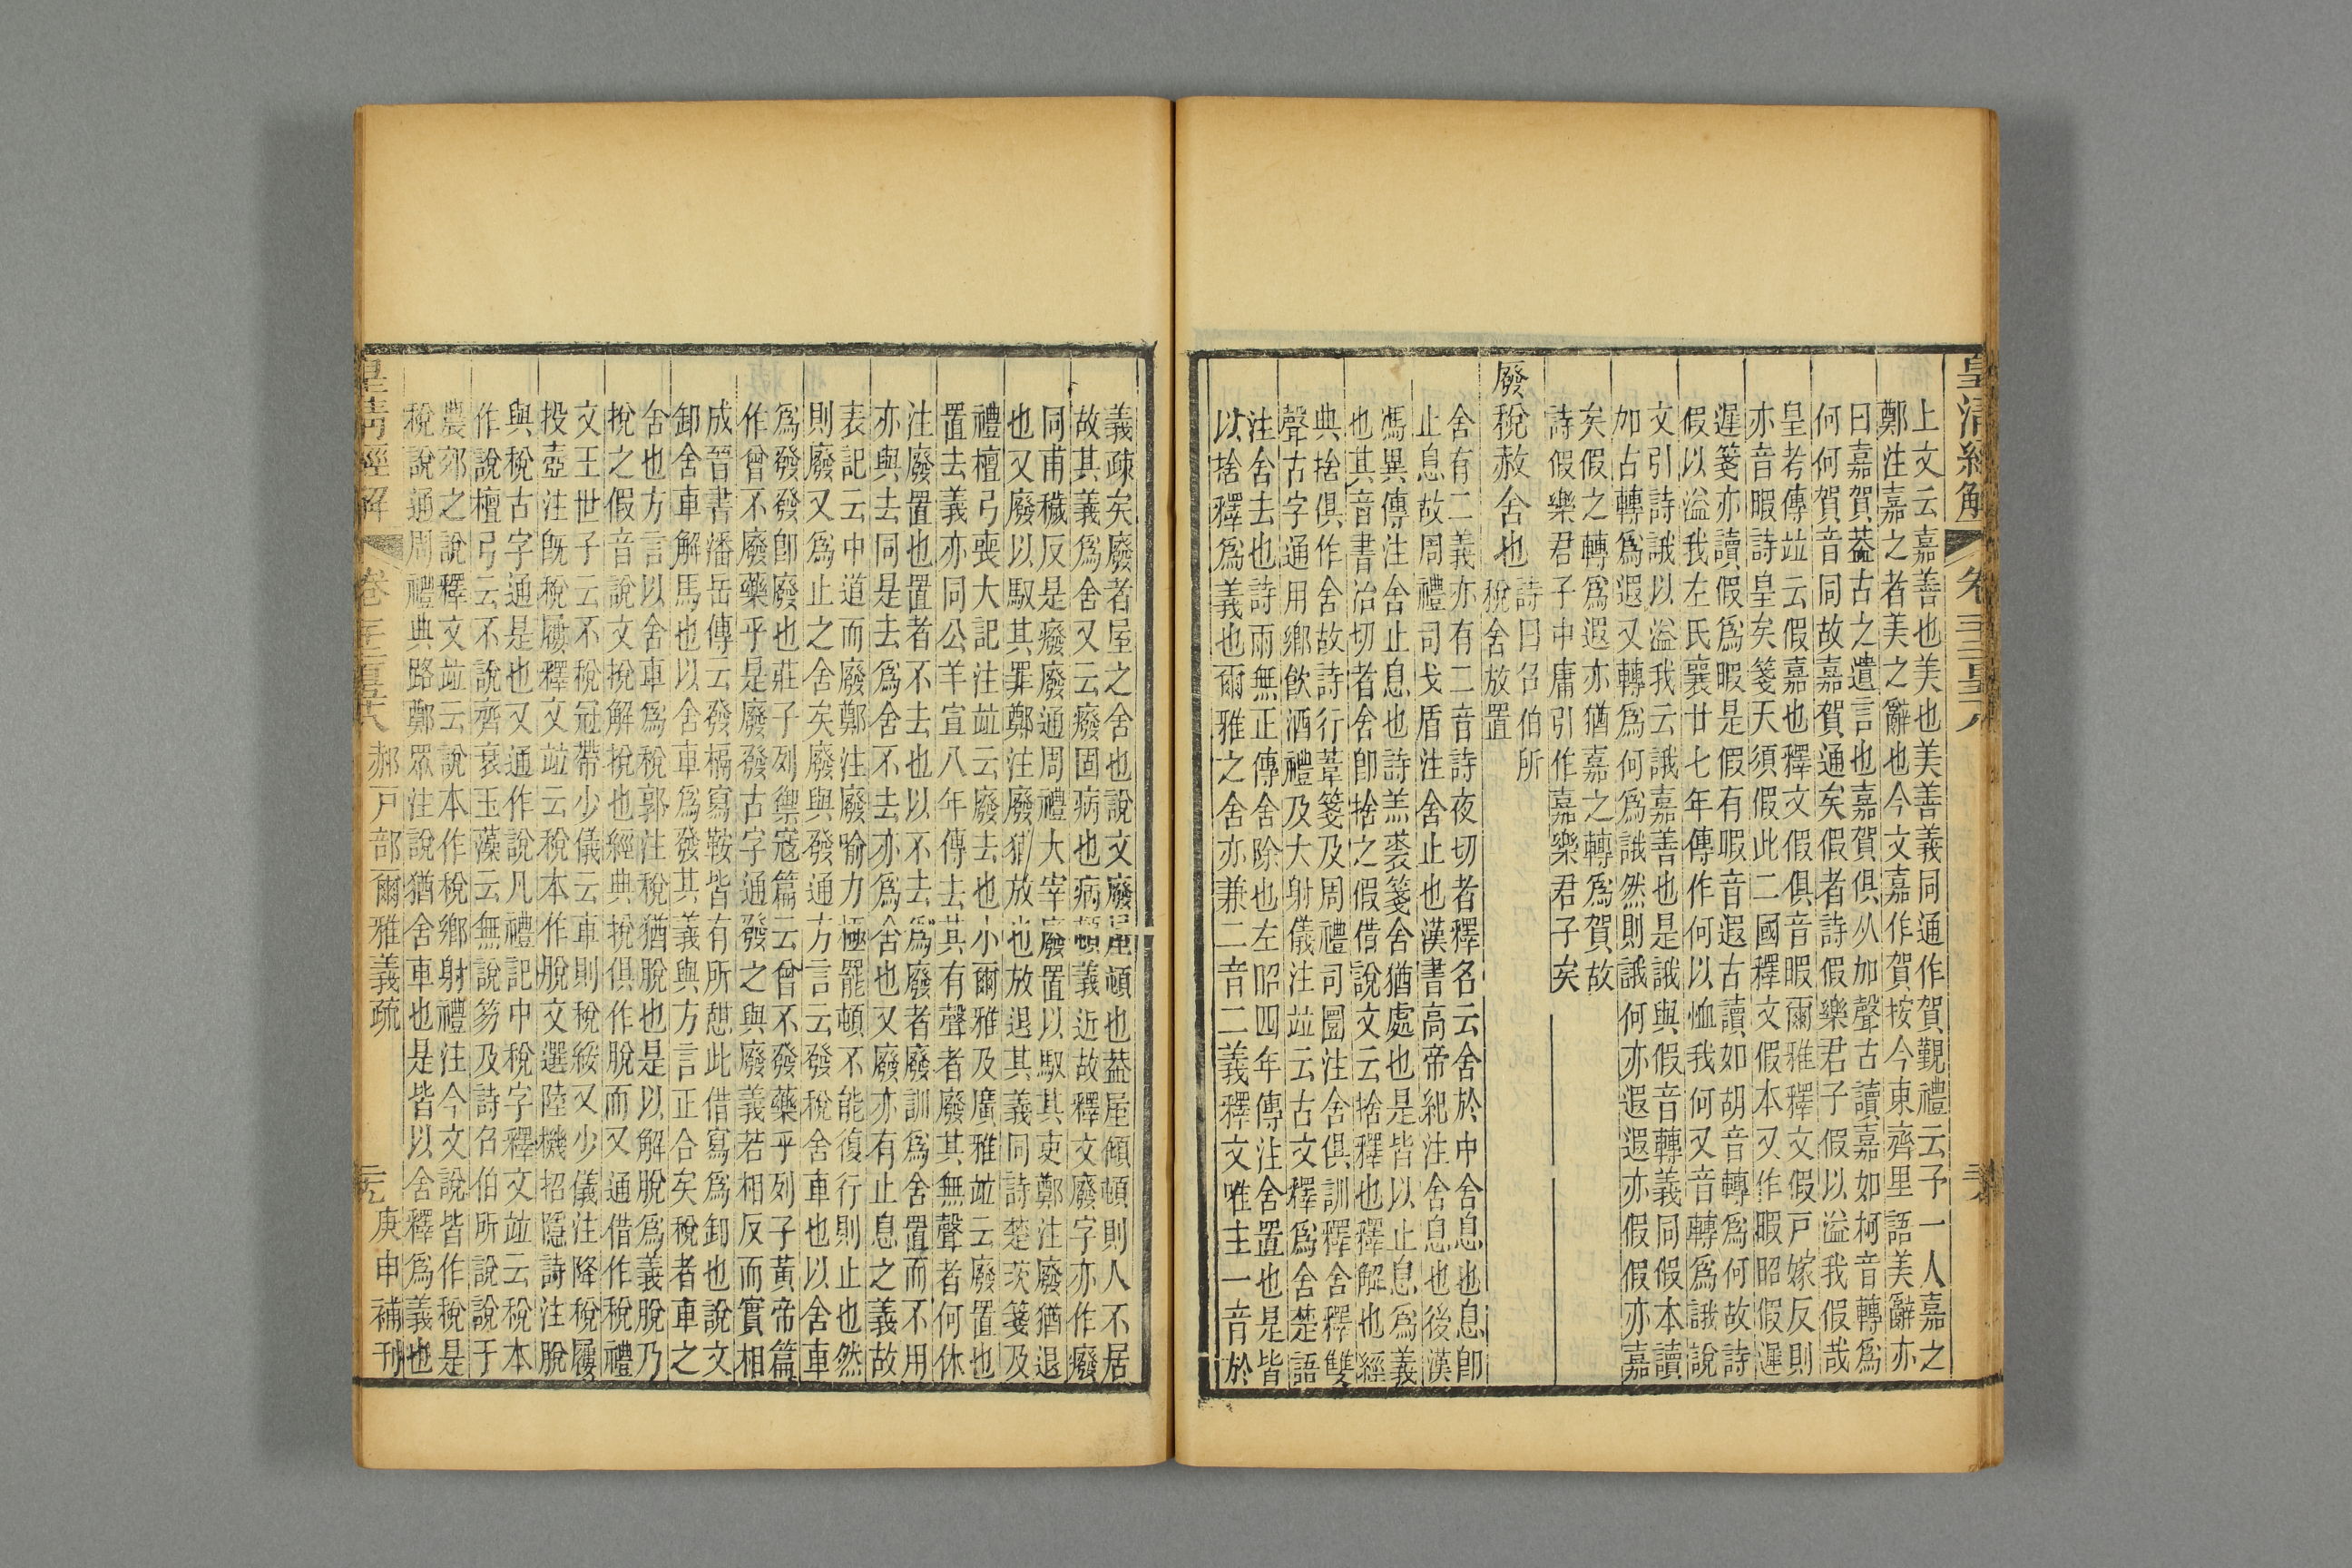 皇清經解
卷
上文云嘉善也美也美善義同通作賀覲禮云予一人嘉之
鄭注嘉之者美之辭也今文嘉作賀按今東齊里語美辭亦
曰嘉賀葢古之遺言也嘉賀俱从加聲古讀嘉如柯音轉爲
何何賀音同故嘉賀通矣假者詩假樂君子假以溢我假哉
皇若傳竝云假嘉也釋文假俱音暇爾雅釋文假戸嫁反則
亦音暇詩皇矣箋天須假此二國釋文假本又作暇昭假遲
遲箋亦讀假爲暇是假有暇音遐古讀如胡音轉爲何故詩
假以溢我左氏襄廿七年傳作何以恤我何又音轉爲誐說
文引詩誐以溢我云誐嘉善也是誐與假音轉義同假本讀
加古轉爲遐又轉爲何爲誐然則誐何亦遐遐亦假假亦嘉
矣假之轉爲遐亦猶嘉之轉爲賀故
詩假樂君子中庸引作嘉樂君子矣
廢稅赦舍也
詩曰召伯所
稅舍放置
舍有二義亦有二音詩夜切者釋名云舍於中舍息也息卽
止息故周禮司戈盾注舍止也漢書高帝紀注舍息也後漢
馮異傳注舍止息也詩羔裘箋舍猶處也是皆以止息爲義
也其音書冶切者舍卽捨之假借說文云捨釋也釋解也經
典捨俱作舍故詩行葦箋及周禮司圜注舍俱訓釋舍釋雙
聲古字通用鄉飲酒禮及大射儀注竝云古文釋爲舍楚語
注舍去也詩雨無正傳舍除也左昭四年傳注舍置也是皆
以捨釋爲義也爾雅之舍亦兼二音二義釋文唯主一音於
義疎矣廢者屋之舍也說文廢屋頓也葢屋傾頓則人不居
故其義爲舍又云癈固病也病頓義近故釋文廢字亦作癈
同甫穢反是癈廢通周禮大宰廢置以馭其吏鄭注廢猶退
也又廢以馭其罪鄭注廢猶放也放退其義同詩楚茨箋及
禮檀弓喪大記注竝云廢去也小爾雅及廣雅竝云廢置也
置去義亦同公羊宣八年傳去其有聲者廢其無聲者何休
注廢置也置者不去也以不去爲廢者廢訓爲舍置而不用
亦與去同是去爲舍不去亦爲舍也又廢亦有止息之義故
表記云中道而廢鄭注廢喻力極罷頓不能復行則止也然
則廢又爲止之舍矣廢與發通方言云發稅舍車也以舍車
爲發發卽廢也莊子列禦寇篇云曾不發藥乎列子黃帝篇
作曾不廢藥乎是廢發古字通發之與廢義若相反而實相
成晉書潘岳傳云發槅寫鞍皆有所憇此借寫爲卸也說文
卸舍車解馬也以舍車爲發其義與方言正合矣稅者車之
舍也方言以舍車爲稅郭注稅猶脫也是以解脫爲義脫乃
挩之假音說文挩解挩也經典挩俱作脫而又通借作稅禮
文王世子云不稅冠帶少儀云車則稅綏又少儀注降稅屨
投壺注旣稅屨釋文竝云稅本作脫文選陸機招隱詩注脫
與稅古字通是也又通作說凡禮記中稅字釋文竝云稅本
作說檀弓云不說齊衰玉藻云無說笏及詩召伯所說說于
農郊之說釋文竝云說本作稅鄉射禮注今文說皆作稅是
稅說通周禮典路鄭眾注說猶舍車也是皆以舍釋爲義也
皇清經解
郝戸部爾雅義疏
庚申補刊